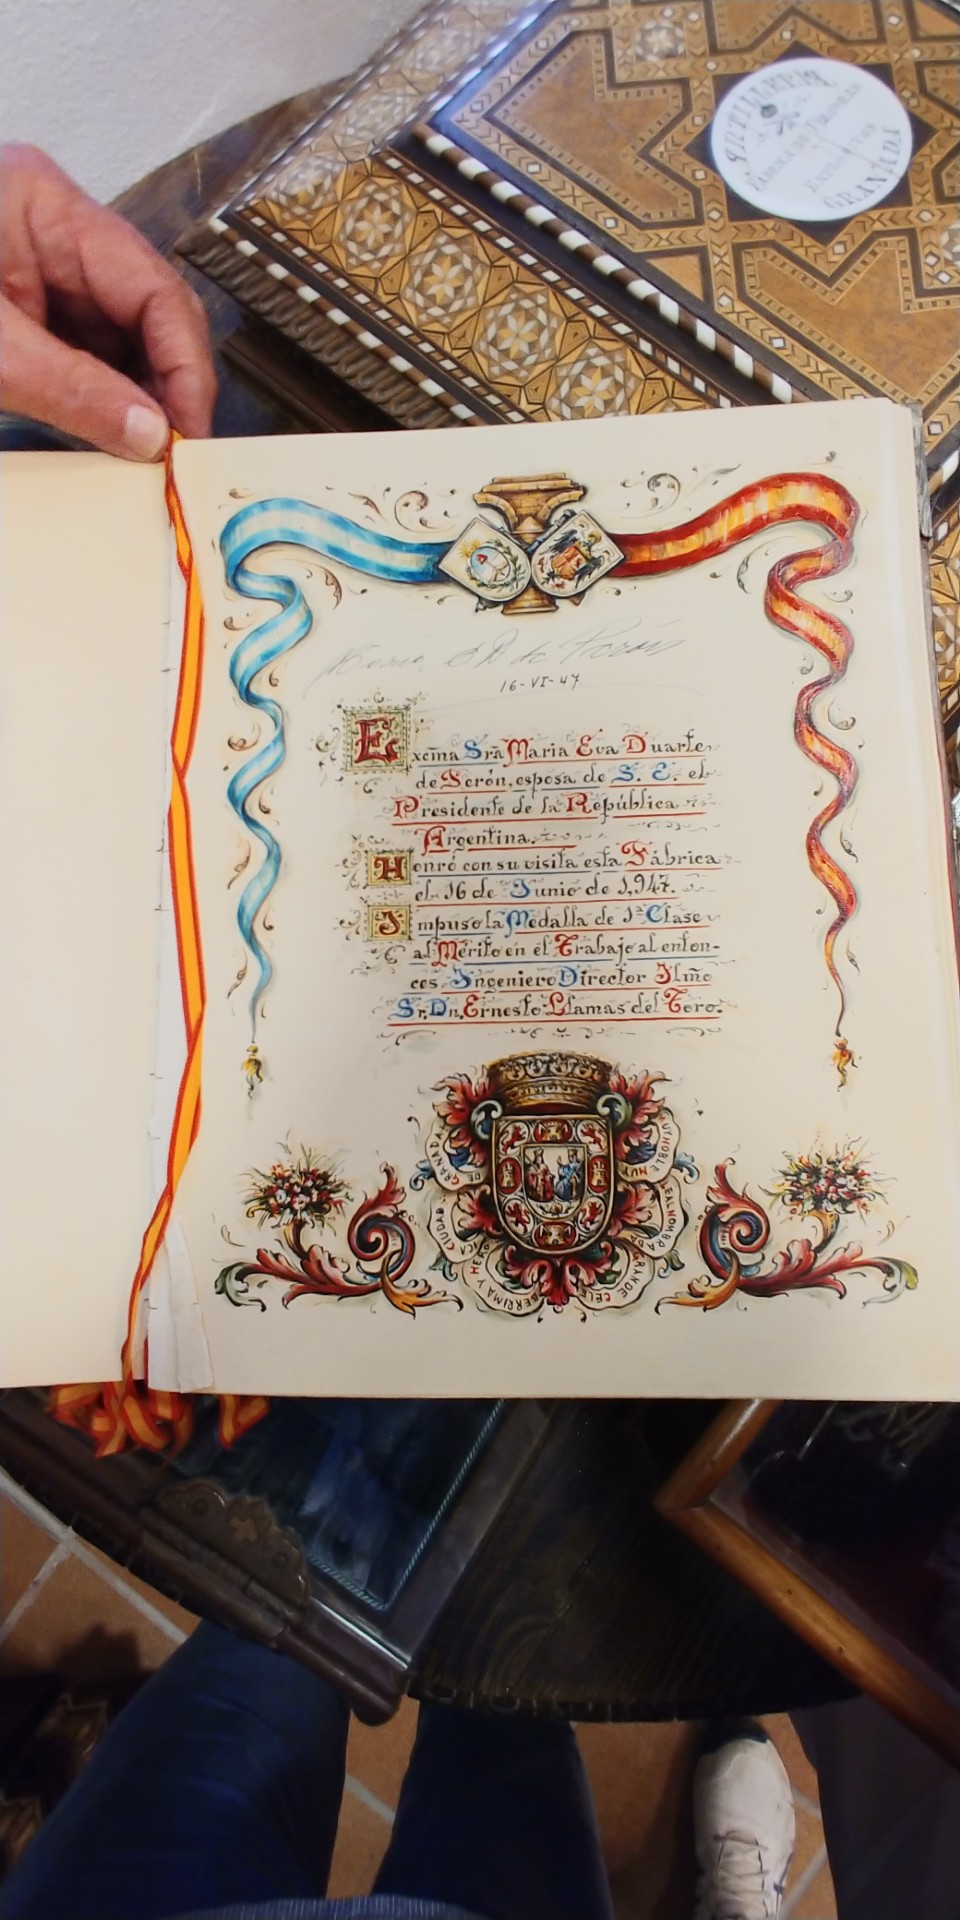 ARTILLERIA
FÁBRICA DE PÓLVORAS
EXPLOSIVOS
GRANADA
Maria E D de Perón
16-VI-47
Excma Sra Maria Eva Duarte
de Perón, esposa de S. E. el
Presidente de la República
Argentina.
Honró con su visita esta Fábrica
el 16 de Junio de 1,947.
Impuso la Medalla de 1ª Clase
al Mérito en el Trabajo al enton-
ces Ingeniero Director Ilmo
Sr. Dn. Ernesto Llamas del Toro.
MUY NOBLE MUY LEAL NOMBRADA GRANDE CELEBERRIMA Y HEROICA CIUDAD DE GRANADA